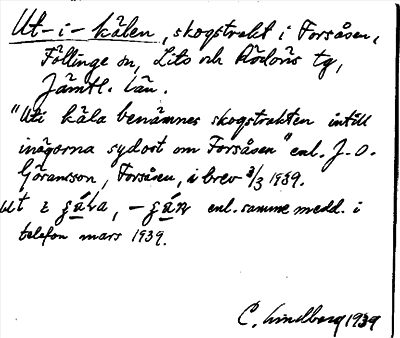 Ut-i-kälen, skogstrakt i Forsåsen,
Föllinge sn, Lits och Rödöns tg,
Jämtl. län.
"Uti käla benämnes skogstrakten intill
inägorna sydost om Forsåsen" enl. J.O.
Göransson, Forsåsen, i brev 3/3 1939.
ut enl. samme medd. i
telefon mars 1939.
C. Lindberg 1939